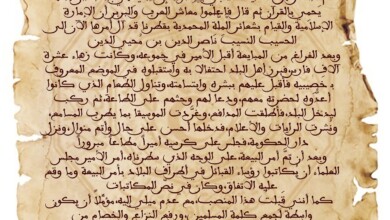 يحمي بالقرآن ثم قال فاعلموا معاشر العرب والبربر أن الإمارة
الإسلامية والقيام بشعائر الملة المحمدية بقطرنا قد آل أمرها الآن إلى
الحسيب النسيب ناصر الدين بن محيي الدين
وبعد الفراغ من المبايعة أقبل الأمير في جموعه، وكانت زهاء عشرة
آلاف فارس فبرز أهل البلد احتفالا به واستقبلوه في الموضع المعروف
بخصيبيه فأقبل عليهم ببشره وابتسامته، وتناول الطعام الذي كانوا
أعدوه لحضرته معهم، ودعا لهم وحثهم على الطاعة، ثم ركب
ليدخل البلد، فأطلقت المدافع، وغردت الموسيقا بما يطرب المسامع،
ونشرت الرايات والأعلام، فدخلها أحسن على حال وأتم منوال، ونزل
دار الحكومة، فجلس على كرسيه أميراً مطاعاً مبروراً
وبعد أن تم أمر البيعة على الوجه الذي سطرناه، أمر الأمير مجلس
العلماء، أن يكاتبوا رؤساء القبائل في أطراف البلاد بأمر البيعة وما وقع
عليه الاتفاق، وكان في نص المكاتبات
كما أنني قبلت هذا المنصب، مع عدم ميلي إليه، مؤملا أن يكون
واسطة لجمع كلمة المسلمين، ورفع النزاع والخصام من